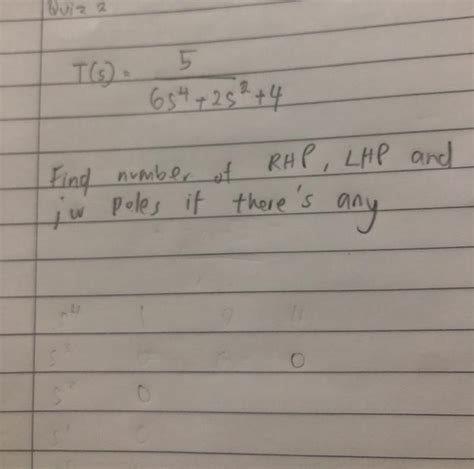 Quiz 2
T(s) = 5 / 6s⁴ + 2s² + 4
Find number of RHP, LHP and
jw poles if there's any
s⁴ 1
s³ 0
s² 0
s¹ 0